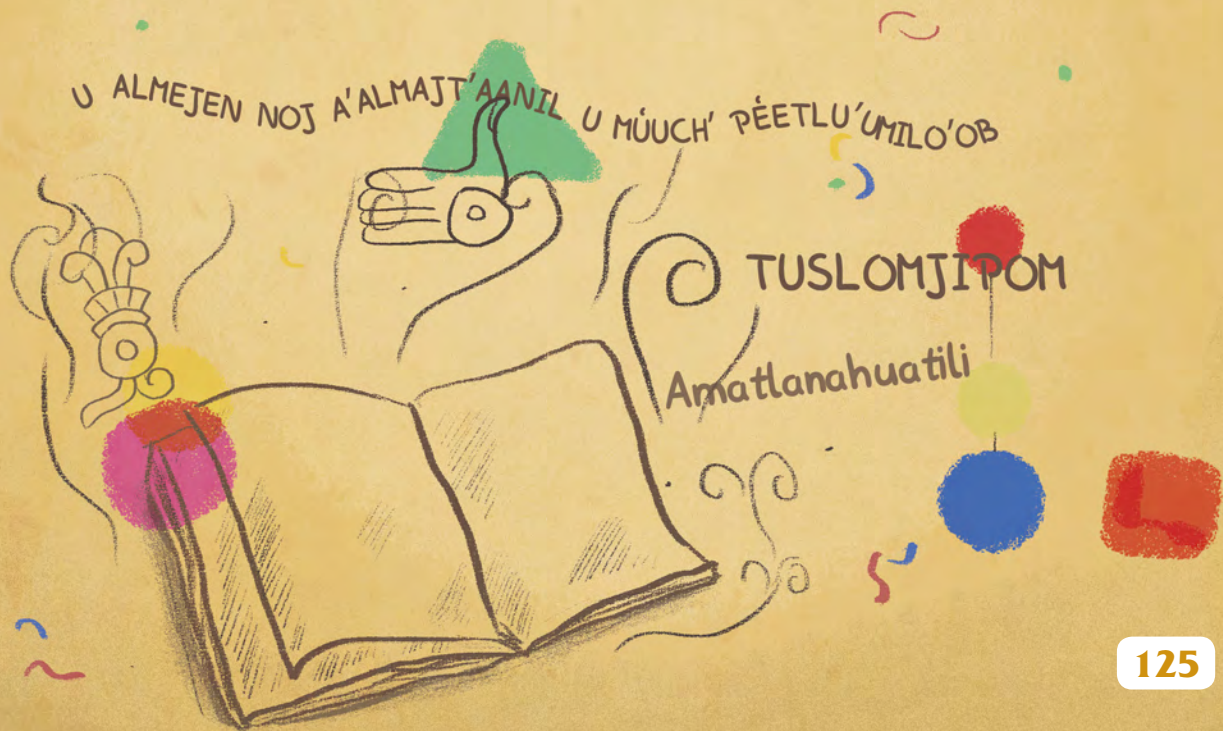 U ALMEJEN NOJ A'ALMAJT'AANIL U MÚUCH' PÉETLU'UMILO'OB
TUSLOMJIPOM
Amatlanahuatili
125